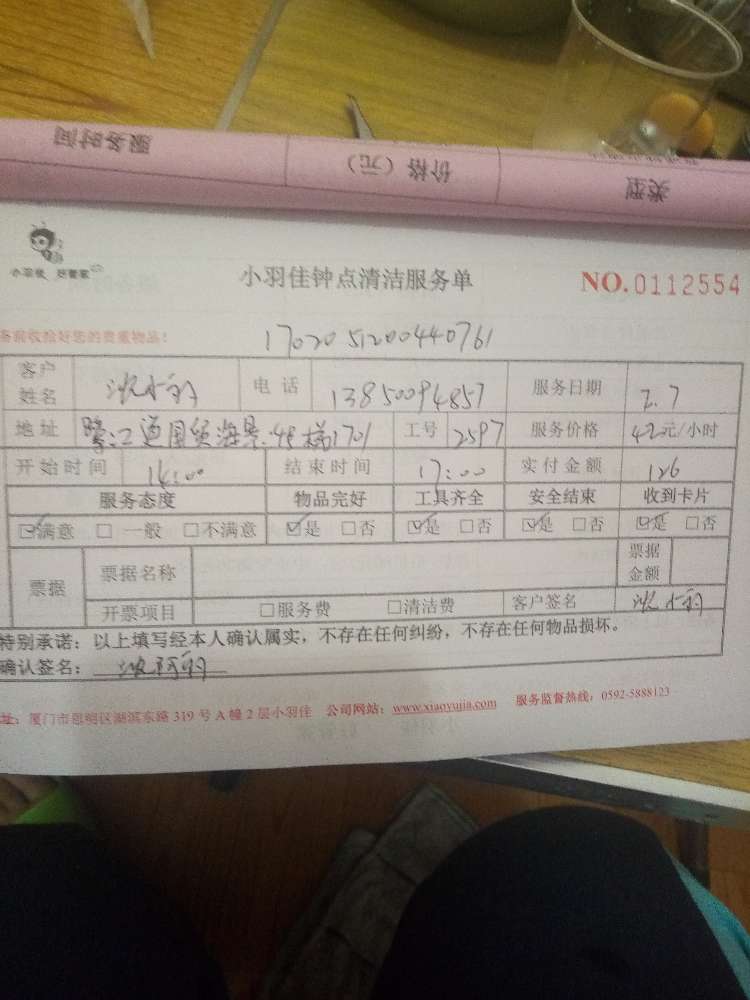 服务时间 价格（元） 类型
小羽佳 好管家
小羽佳钟点清洁服务单 NO.0112554
备前收拾好您的贵重物品！
1702051200440761
客户姓名 电话 13850094857 服务日期 2.7
地址 鹭江道国贸海景48梯1701 工号 2597 服务价格 42元/小时
开始时间 14:00 结束时间 17:00 实付金额 126
服务态度 物品完好 工具齐全 安全结束 收到卡片
☑满意 □一般 □不满意 ☑是 □否 ☑是 □否 ☑是 □否 ☑是 □否
票据 票据名称 票据金额
开票项目 □服务费 □清洁费 客户签名
特别承诺：以上填写经本人确认属实，不存在任何纠纷，不存在任何物品损坏。
确认签名：
址：厦门市思明区湖滨东路319号A幢2层小羽佳 公司网站：www.xiaoyujia.com 服务监督热线：0592-5888123